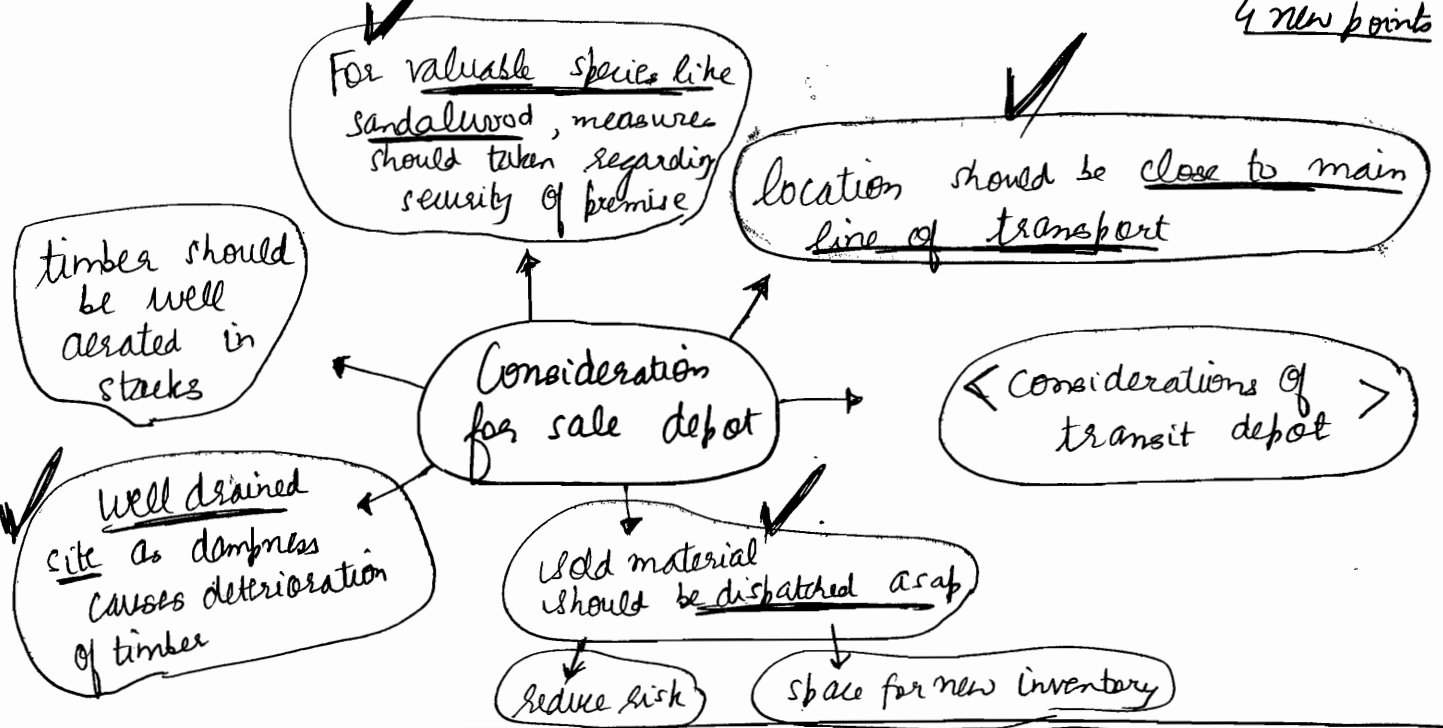 4 new points
For valuable species like
sandalwood, measures
should taken regarding
security of premise
location should be close to main
line of transport
timber should
be well
aerated in
stacks
Consideration
for sale depot
< considerations of >
transit depot
well drained
site as dampness
causes deterioration
of timber
sold material
should be dispatched asap
reduce risk
space for new inventory